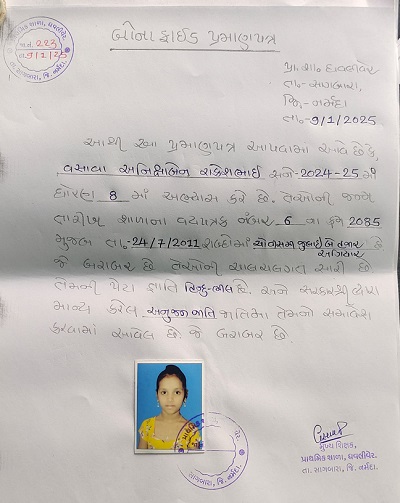 પ્રાથમિક શાળા, ધવલીવેર
જા.નં. 223
તા. 9/1/25
તા. સાગબારા, જિ. નર્મદા.
બોનાફાઈડ પ્રમાણપત્ર
પ્રા.શા. ધવલીવેર
તા.- સાગબારા,
જિ.- નર્મદા
તા.- 9/1/2025
આથી આ પ્રમાણપત્ર આપવામાં આવે છે કે,
વસાવા રાકેશભાઈ સને-2024-25 માં
ધોરણ 8 માં અભ્યાસ કરે છે. તેઓની જન્મ
તારીખ શાળાના વયપત્રક નંબર 6 ના 2085
મુજબ તા.-24/7/2011 શબ્દોમાં ચોવીસમી જુલાઈ બે હજાર
અગિયાર છે
જે બરાબર છે તેઓની ચાલચલગત સારી છે
તેમની પેટા જ્ઞાતિ હિન્દુ-ભીલ છે. અને સરકારશ્રી દ્વારા
માન્ય કરેલ અનુજનજાતિ જાતિમાં તેમનો સમાવેશ
કરવામાં આવેલ છે. જે બરાબર છે.
મુખ્ય શિક્ષક,
પ્રાથમિક શાળા, ધવલીવેર.
તા. સાગબારા, જિ. નર્મદા.